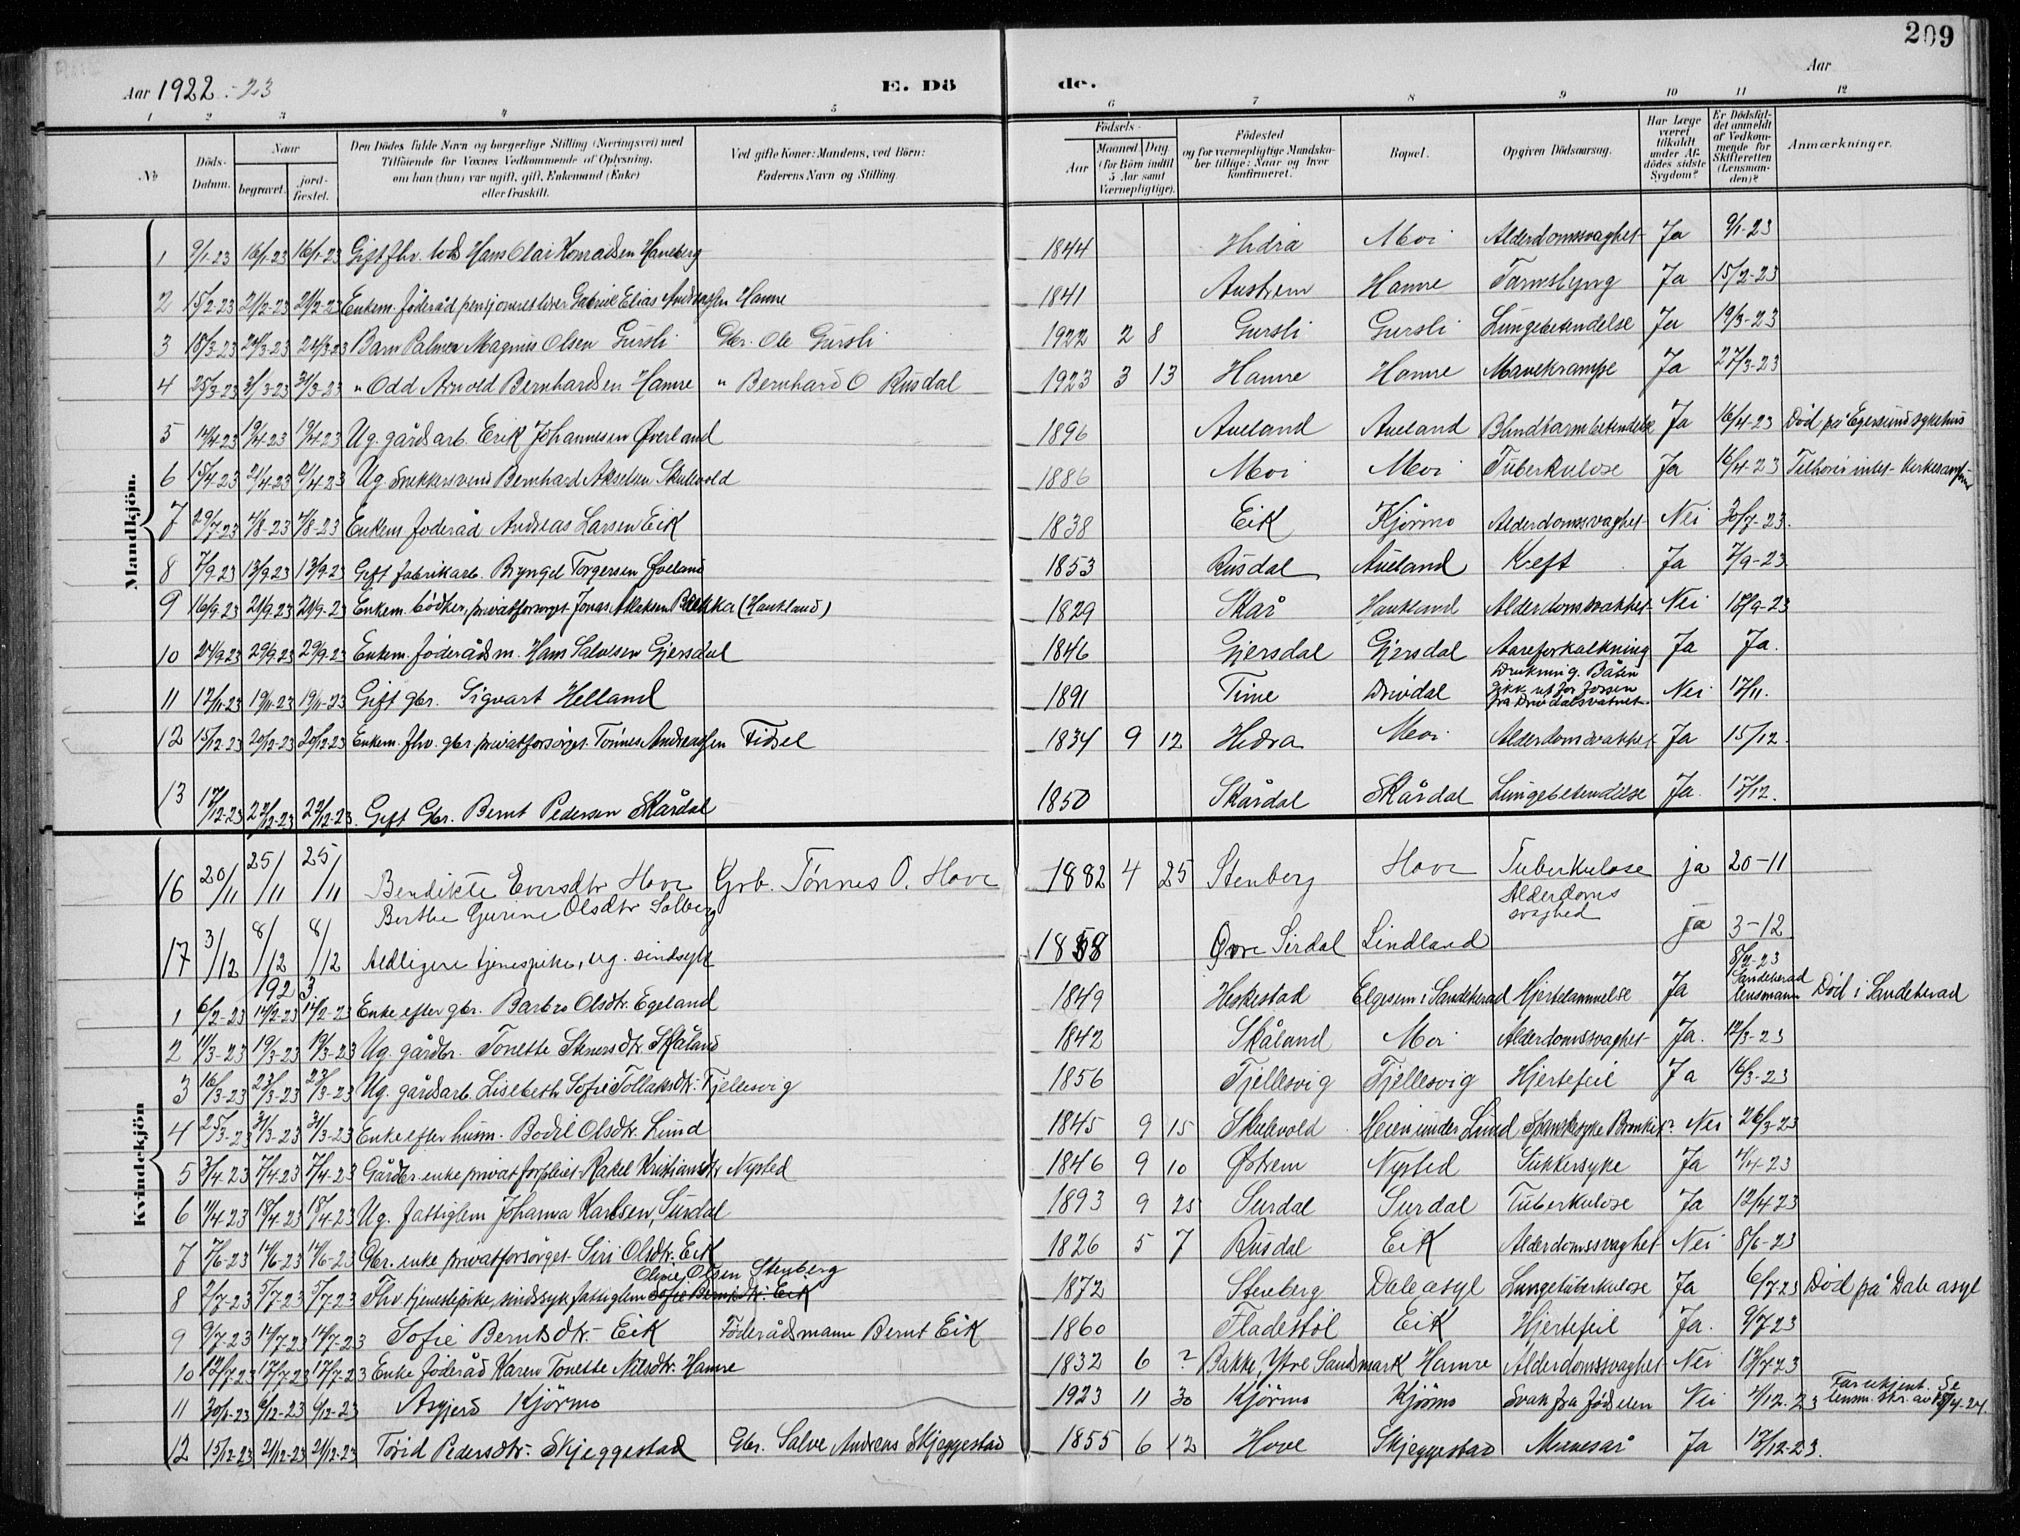 209
Aar 1922-23 E. Dö de. Aar
1 2 3 4 5 6 7 8 9 10 11 12
No Döds-Datum. Naar begravet. jord-fæstet. Den Dödes fulde Navn og borgerlige Stilling (Næringsvei) med Tilföiende for Voxnes Vedkommende af Oplysning, om han (hun) var ugift, gift, Enkemand (Enke) eller fraskilt. Ved gifte Koner: Mandens, ved Börn: Faderens Navn og Stilling. Födsels- Aar Maaned Dag (for Börn indtil 5 Aar samt Værnepligtige). Födested og for værnepligtige Mandskaber tillige: Naar og hvor konfirmeret. Bopæl. Opgiven Dödsaarsag. Har Læge været tilkaldt under Afdödes sidste Sygdom? Er Dödsfaldet anmeldt af Vedkommende for Skifteretten (Lensmanden)? Anmærkninger.
Mandkjön.
1 9/1-23 16/1-23 16/1-23 Gift fhv. lods Hans Olai Konradsen Haneberg 1844 Hidra Moi Alderdomssvaghet Ja 9/1-23
2 15/2-23 21/2-23 21/2-23 Enkem. föderåd Gabriel Elias Andreassen Hamre 1841 Austrem Hamre Tarmslyng Ja 15/2-23
3 18/3-23 24/3-23 24/3-23 Barn Palmer Magnus Olsen Gursli Gbr. Ole Gursli 1922 2 8 Gursli Gursli Lungebetendelse Ja 19/3-23
4 25/3-23 31/3-23 31/3-23 " Odd Arnold Bernhardsen Hamre " Bernhard O Rusdal 1923 3 13 Hamre Hamre Mavekrampe Ja 27/3-23
5 14/4-23 19/4-23 19/4-23 Ug. gårdsarb. Erik Johannesen Överland 1896 Aueland Aueland Blindtarmbetendelse Ja 16/4-23 Död på Egersund sykehus
6 15/4-23 21/4-23 21/4-23 Ug. Snekkersvend Bernhard Akselsen Skulevold 1886 Moi Moi Tuberkulose Ja 16/4-23
7 29/7-23 4/8-23 4/8-23 Enkem. föderåd Andreas Larsen Eik 1838 Eik Kjörmo Alderdomssvaghet Nei 30/7-23.
8 7/9-23 13/9-23 13/9-23 Gift fabrikarb. Bryngel Torgersen Öveland 1853 Rusdal Aueland Kreft Ja 7/9-23
9 16/9-23 21/9-23 21/9-23 Enkem. bödker, privatforsörget Jonas Aslaksen Bakka (Haukland) 1829 Skår Haukland Alderdomssvakhet Nei 18/9-23
10 24/9-23 29/9-23 29/9-23 Enkem. föderådsm. Hans Salvesen Gjersdal 1846 Gjersdal Gjersdal Aareforkalkning Ja Ja.
11 12/11-23 19/11-23 19/11-23 Gift gbr. Sigvart Helland 1891 Time Drivdal Drukning. Båten gikk ut for fossen fra Drivdalsvatnet. Nei 17/11.
12 15/12-23 20/12-23 20/12-23 Enkem. fhv. gbr. privatforsörget Tönnes Andreassen Fidsel 1834 9 12 Hidra Moi Alderdomsvakhet Ja 15/12.
13 17/12-23 22/12-23 22/12-23. Gift Gbr. Bernt Pedersen Skårdal 1850 Skårdal Skårdal Lungebetendelse Ja. 17/12.
Kvindekjön
16 20/11 25/11 25/11 Bendikte Eversdtr Hove Grb. Tønnes O. Hove 1882 4 25 Stenberg Hove Tuberkulose ja 20-11
Berthe Gurine Olsdtr Solberg Alderdoms svaghed
17 3/12 8/12 8/12 tjenepike, ug. sindsyk 1858 Øvre Sirdal Lindland ja 3-12
1923
1 6/2-23 14/2-23 14/2-23 Enke efter gbr. Barbro Olsdtr. Egeland 1849 Heskestad Elgesem i Sandeherad Hjertelammelse Ja 8/2-23 Sandeherad lensmann Död i Sandeherad
2 11/3-23 19/3-23 19/3-23 Ug. gårdbr. Tonette Skåland 1842 Skåland Moi Alderdomssvaghet Ja. 12/3-23
3 16/3-23 23/3-23 23/3-23 Ug. gårdsarb. Lisebeth Sofie Tollaksdtr. Tjellesvig 1856 Tjellesvig Tjellesvig Hjertefeil Ja 16/3-23
4 25/3-23 31/3-23 31/3-23 Enke efter husm. Bodil Olsdtr. Lund 1845 9 15 Skulevold Heien under Lund Spanskesyke Bronkit? Nei 26/3-23
5 3/4-23 7/4-23 7/4-23 Gårdbr. enke privat forpleiet Rakel Kristiansdtr Nysted 1846 9 10 Östrem Nysted Sukkersyke Ja 4/4-23
6 11/4-23 18/4-23 18/4-23 Ug. fattiglem Johanna Karlsen, Surdal 1893 9 25 Surdal Surdal Tuberkulose Ja 12/4-23
7 7/6-23 14/6-23 14/6-23 Gbr. enke privatforsörget Siri Olsdtr. Eik 1826 5 7 Rusdal Eik Alderdomssvaghet Nei 8/6-23
Olsen Stenberg
8 2/7-23 5/7-23 5/7-23 Fhv. tjenestepike, sindssyk fattiglem Sofie Berntsdtr. Eik 1872 Stenberg Dale asyl Lungetuberkulose Ja 6/7-23 Död på Dale asyl
9 9/7-23 14/7-23 14/7-23 Sofie Berntsdtr. Eik Föderådsmann Bernt Eik 1860 Fladestöl Eik Hjertefeil Ja. 9/7-23
10 12/7-23 17/7-23 17/7-23 Enke föderåd Karen Tonette Nilsdtr. Hamre 1832 6 ? Bakke, Ytre Sandsmark Hamre Alderdomssvaghet Nei 13/7-23
11 30/11-23 6/12-23 6/12-23 Asgjerd Kjörmo 1923 11 30 Kjörmo Kjörmo Svak fra födselen Nei 4/12-23
12 15/12-23 21/12-23 21/12-23 Torid Pedersdtr. Skjeggestad Gbr. Salve Andreas Skjeggestad 1855 6 12 Hove Skjeggestad Mavesår Ja 17/12-23.